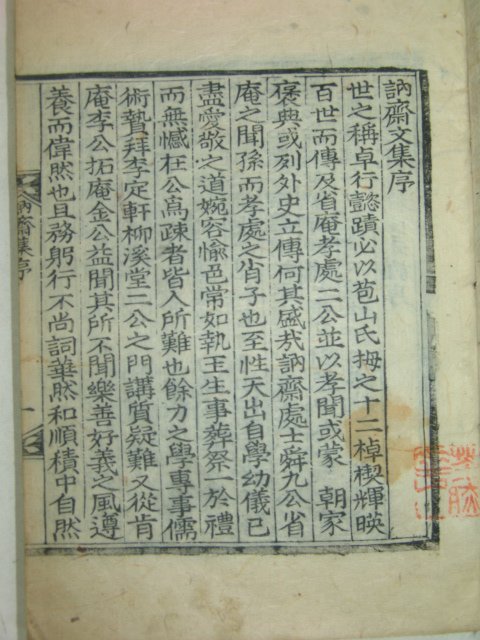 訥齋文集序
世之稱卓行懿蹟必以苞山氏拇之十二棹楔輝暎
百世而傳及省庵孝處二公並以孝聞或蒙 朝家
褒典或列外史立傳何其盛㢤訥齋處士舜九公省
庵之聞孫而孝處之肖子也至性天出自學幼儀已
盡愛敬之道婉容愉色常如執玉生事葬祭一於禮
而無憾在公爲疎者皆人所難也餘力之學專事儒
術贄拜李定軒柳溪堂二公之門講質疑難又從肯
庵李公拓庵金公益聞其所不聞樂善好義之風遵
養而偉然也且務躬行不尚詞華然和順積中自然
訥齋集序
一